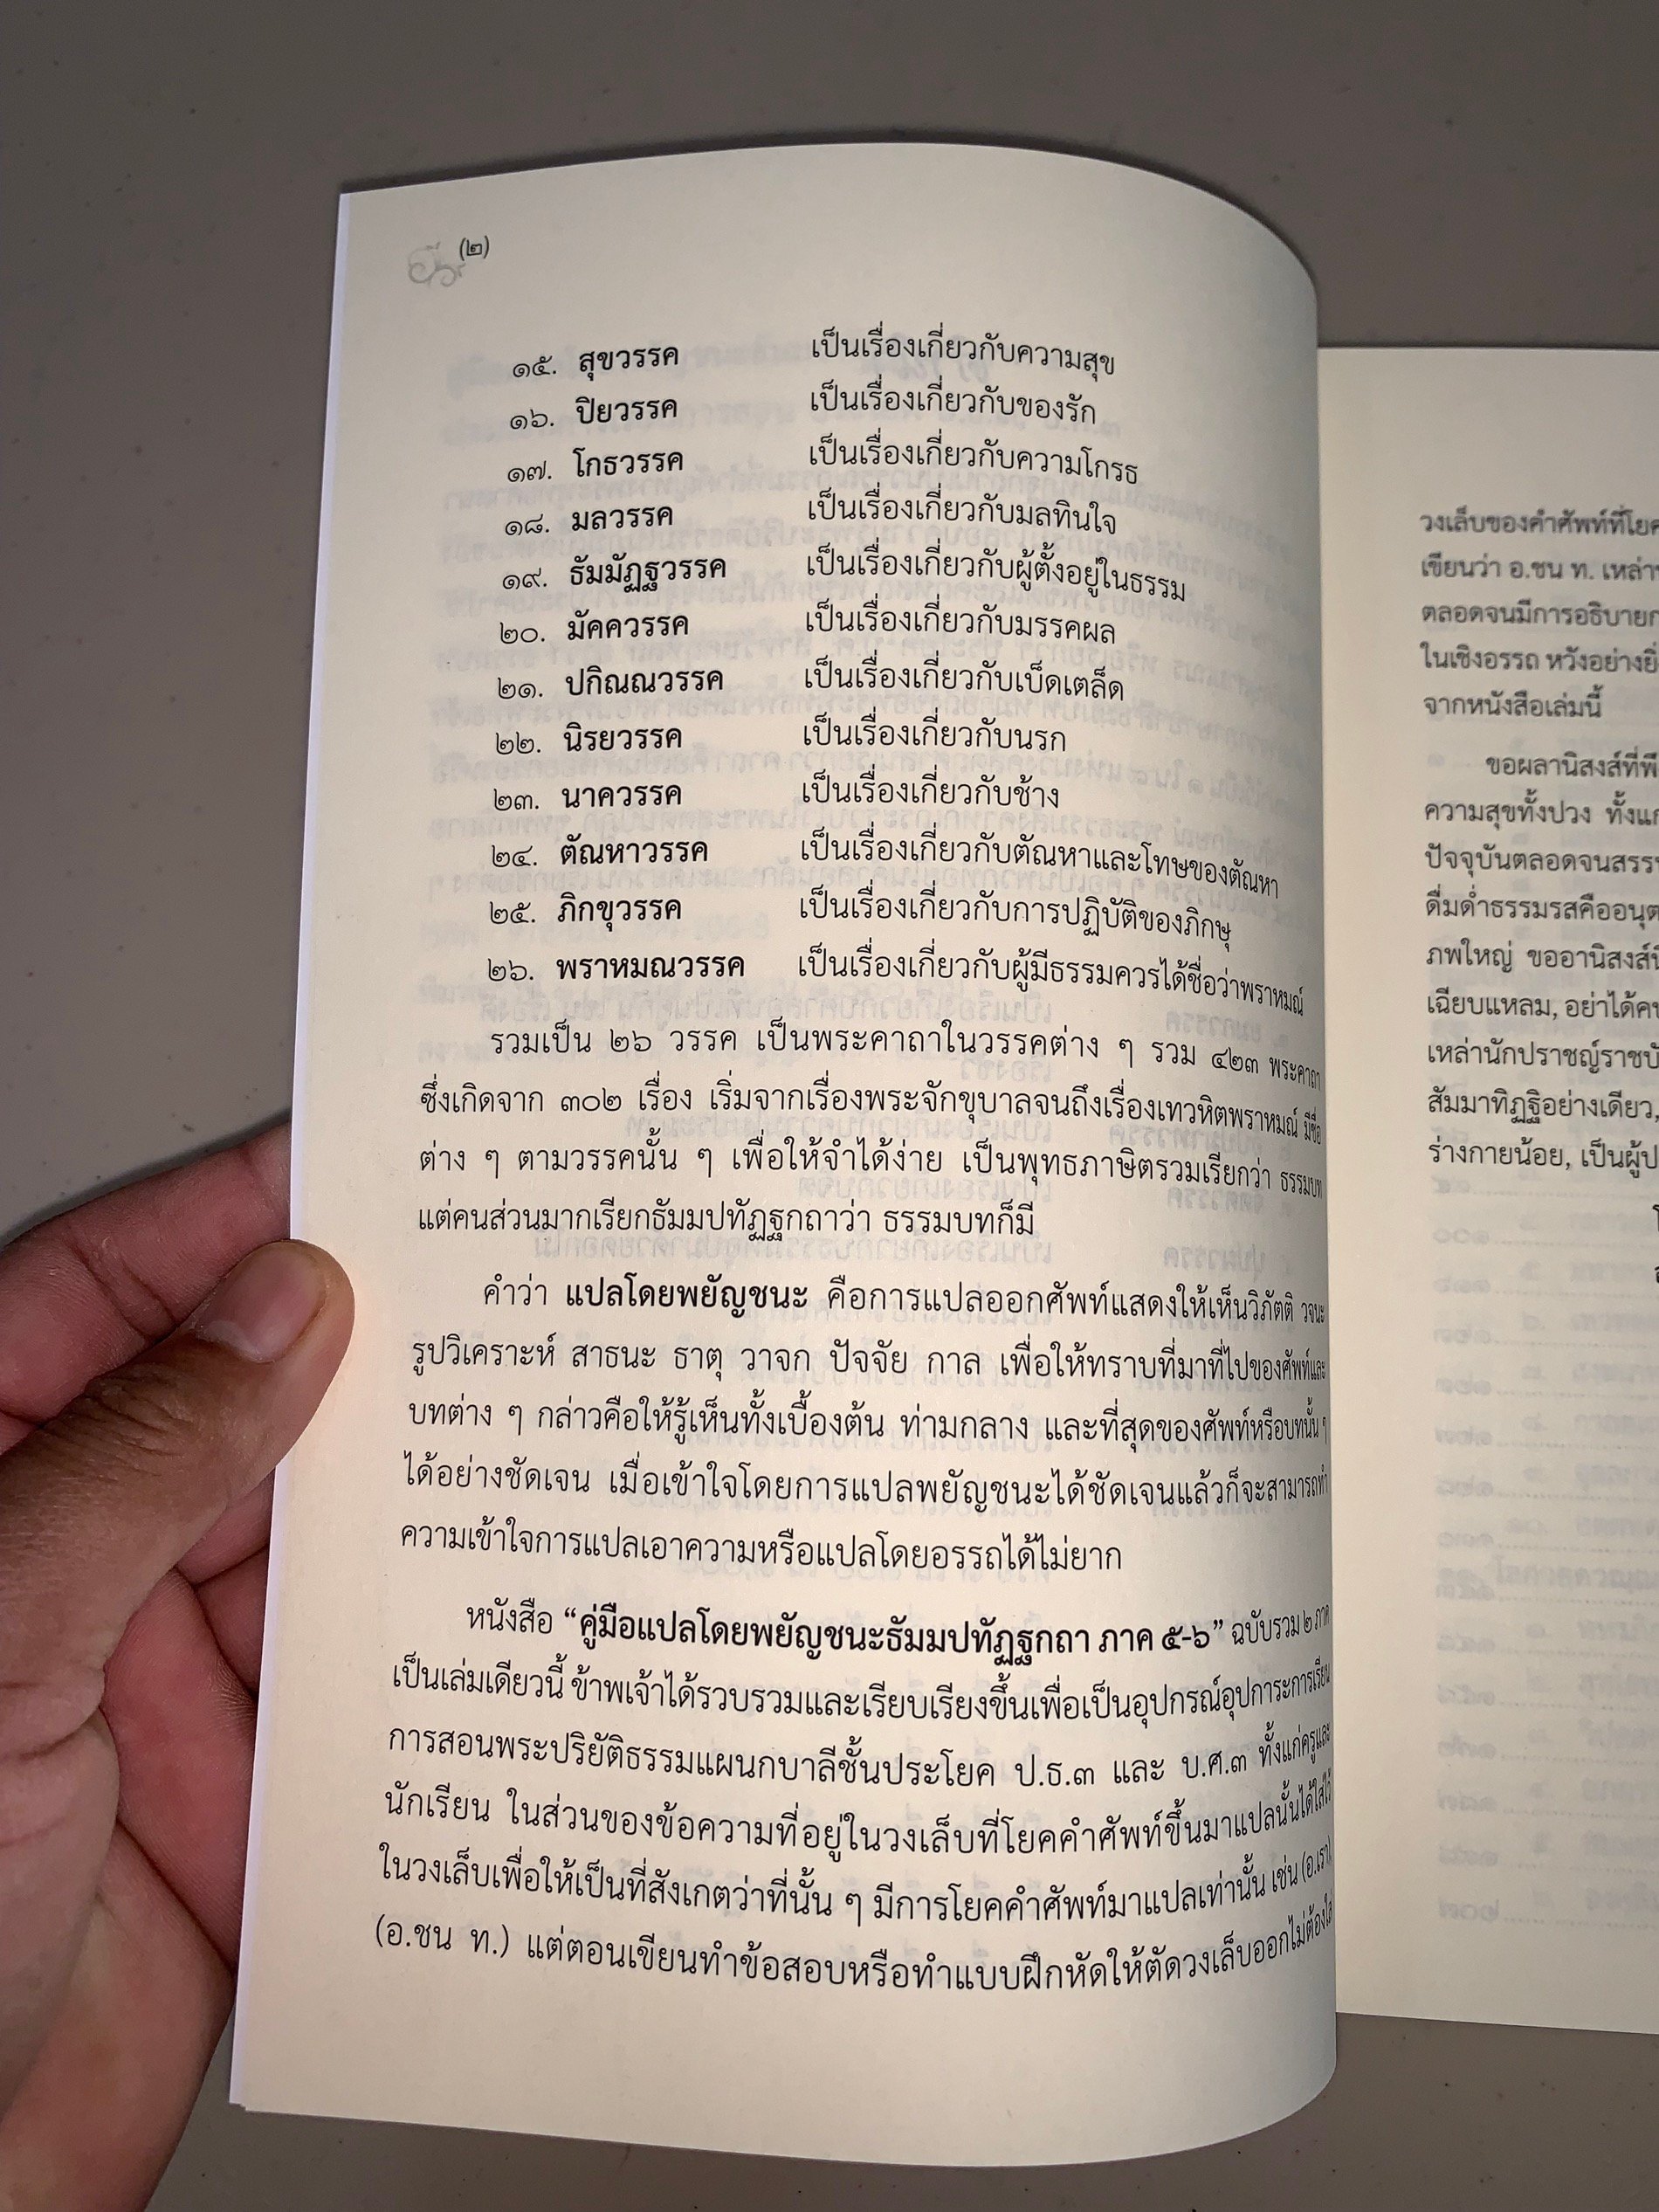 (๒)
๑๕. สุขวรรค เป็นเรื่องเกี่ยวกับความสุข
๑๖. ปิยวรรค เป็นเรื่องเกี่ยวกับของรัก
๑๗. โกธวรรค เป็นเรื่องเกี่ยวกับความโกรธ
๑๘. มลวรรค เป็นเรื่องเกี่ยวกับมลทินใจ
๑๙. ธัมมัฏฐวรรค เป็นเรื่องเกี่ยวกับผู้ตั้งอยู่ในธรรม
๒๐. มัคควรรค เป็นเรื่องเกี่ยวกับมรรคผล
๒๑. ปกิณณวรรค เป็นเรื่องเกี่ยวกับเบ็ดเตล็ด
๒๒. นิรยวรรค เป็นเรื่องเกี่ยวกับนรก
๒๓. นาควรรค เป็นเรื่องเกี่ยวกับช้าง
๒๔. ตัณหาวรรค เป็นเรื่องเกี่ยวกับตัณหาและโทษของตัณหา
๒๕. ภิกขุวรรค เป็นเรื่องเกี่ยวกับการปฏิบัติของภิกษุ
๒๖. พราหมณวรรค เป็นเรื่องเกี่ยวกับผู้มีธรรมควรได้ชื่อว่าพราหมณ์
รวมเป็น ๒๖ วรรค เป็นพระคาถาในวรรคต่าง ๆ รวม ๔๒๓ พระคาถา
ซึ่งเกิดจาก ๓๐๒ เรื่อง เริ่มจากเรื่องพระจักขุบาลจนถึงเรื่องเทวหิตพราหมณ์ มีชื่อ
ต่าง ๆ ตามวรรคนั้น ๆ เพื่อให้จำได้ง่าย เป็นพุทธภาษิตรวมเรียกว่า ธรรมบท
แต่คนส่วนมากเรียกธัมมปทัฏฐกถาว่า ธรรมบทก็มี
คำว่า แปลโดยพยัญชนะ คือการแปลออกศัพท์แสดงให้เห็นวิภัตติ วจนะ
รูปวิเคราะห์ สาธนะ ธาตุ วาจก ปัจจัย กาล เพื่อให้ทราบที่มาที่ไปของศัพท์และ
บทต่าง ๆ กล่าวคือให้รู้เห็นทั้งเบื้องต้น ท่ามกลาง และที่สุดของศัพท์หรือบทนั้น ๆ
ได้อย่างชัดเจน เมื่อเข้าใจโดยการแปลพยัญชนะได้ชัดเจนแล้วก็จะสามารถทำ
ความเข้าใจการแปลเอาความหรือแปลโดยอรรถได้ไม่ยาก
หนังสือ “คู่มือแปลโดยพยัญชนะธัมมปทัฏฐกถา ภาค ๕-๖” ฉบับรวม ๒ ภาค
เป็นเล่มเดียวนี้ ข้าพเจ้าได้รวบรวมและเรียบเรียงขึ้นเพื่อเป็นอุปกรณ์อุปการะการเรียน
การสอนพระปริยัติธรรมแผนกบาลีชั้นประโยค ป.ธ.๓ และ บ.ศ.๓ ทั้งแก่ครูและ
นักเรียน ในส่วนของข้อความที่อยู่ในวงเล็บที่โยคคำศัพท์ขึ้นมาแปลนั้นได้ใส่ไว้
ในวงเล็บเพื่อให้เป็นที่สังเกตว่าที่นั้น ๆ มีการโยคคำศัพท์มาแปลเท่านั้น เช่น (อ.เรา)
(อ.ชน ท.) แต่ตอนเขียนทำข้อสอบหรือทำแบบฝึกหัดให้ตัดวงเล็บออกไม่ต้องใส่
วงเล็บของคำศัพท์ที่โยค
เขียนว่า อ.ชน ท. เหล่า
ตลอดจนมีการอธิบาย
ในเชิงอรรถ หวังอย่างยิ่
จากหนังสือเล่มนี้
ขอผลานิสงส์ที่
ความสุขทั้งปวง ทั้งแก่
ปัจจุบันตลอดจนสรร
ดื่มด่ำธรรมรสคืออนุต
ภพใหญ่ ขออานิสงส์
เฉียบแหลม, อย่าได้
เหล่านักปราชญ์ราชบั
สัมมาทิฏฐิอย่างเดียว,
ร่างกายน้อย, เป็นผู้